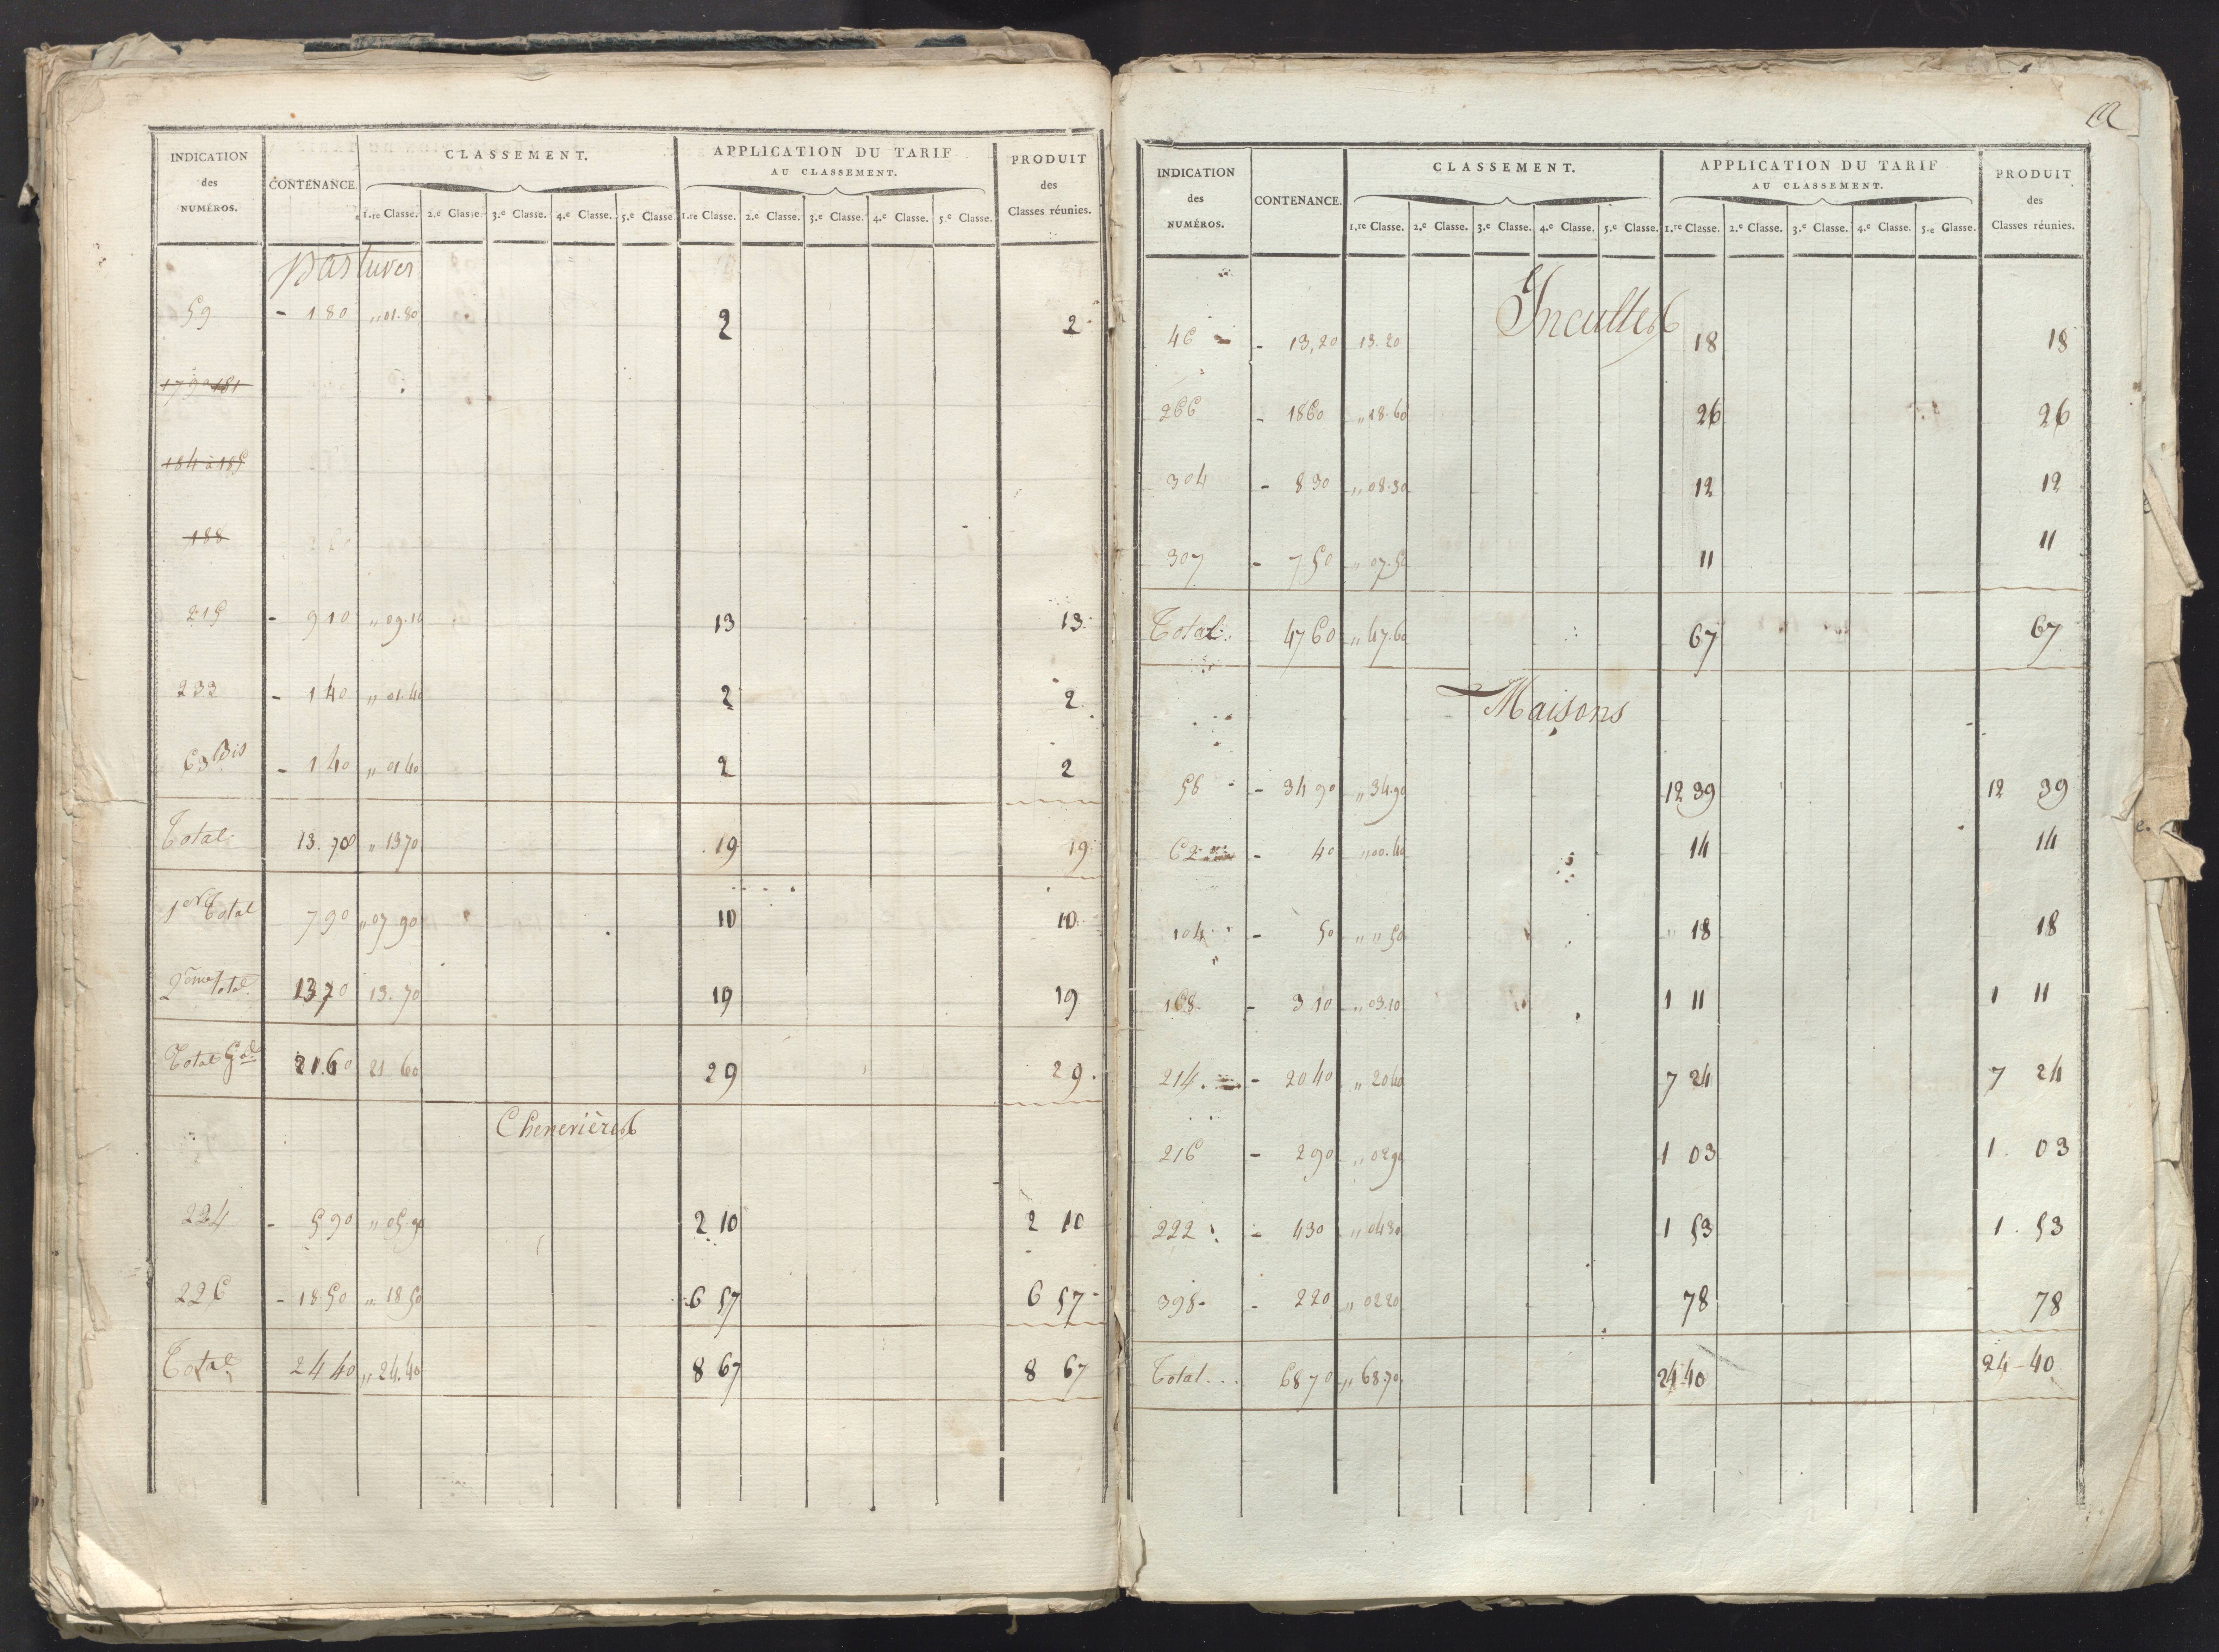 INDICATION des NUMÉROS. CONTENANCE. CLASSEMENT. APPLICATION DU TARIF AU CLASSEMENT. PRODUIT des Classes réunies.
1.re Classe. 2.e Classe. 3.e Classe. 4.e Classe. 5.e Classe. 1.re Classe. 2.e Classe. 3.e Classe. 4.e Classe. 5.e Classe.
pastures
59 - 180 „01.80 2 2
179 a 181
184 à 185
188
215 - 910 „09.10 13 13
233 - 140 „01.40 2 2
63 Bis - 140 „01 40 2 2
Total 13.70 „1370 19 19
1er Total 790 „07 90 10 10
2ème Total 1370 13.70 19 19
Total Gal 21.60 21 60 29 29
Chenevières
224 - 590 „05.90 2 10 2 10
226 - 1850 „18 50 6 57 6 57
Total 2440 „24.40 8 67 8 67
22
INDICATION des NUMÉROS. CONTENANCE. CLASSEMENT. APPLICATION DU TARIF AU CLASSEMENT. PRODUIT des Classes réunies.
1.re Classe. 2.e Classe. 3.e Classe. 4.e Classe. 5.e Classe. 1.re Classe. 2.e Classe. 3.e Classe. 4.e Classe. 5.e Classe.
Incultes
46 - 13,20 13.20 18 18
266 - 1860 „18.60 26 26
304 - 830 „08.30 12 12
307 - 750 „07.50 11 11
Total 4760 „47.60 67 67
Maisons
56 - 3490 „34.90 12 39 12 39
62 - 40 „00.40 14 14
104 - 50 „ „ 50 18 18
168 - 310 „03.10 1 11 1 11
214 - 2040 „2040 7 24 7 24
216 - 290 „0290 1 03 1 03
222 - 430 „0430 1 53 1 53
398 - 220 „0220 78 78
Total... 6870 „68.70 24 40 24-40